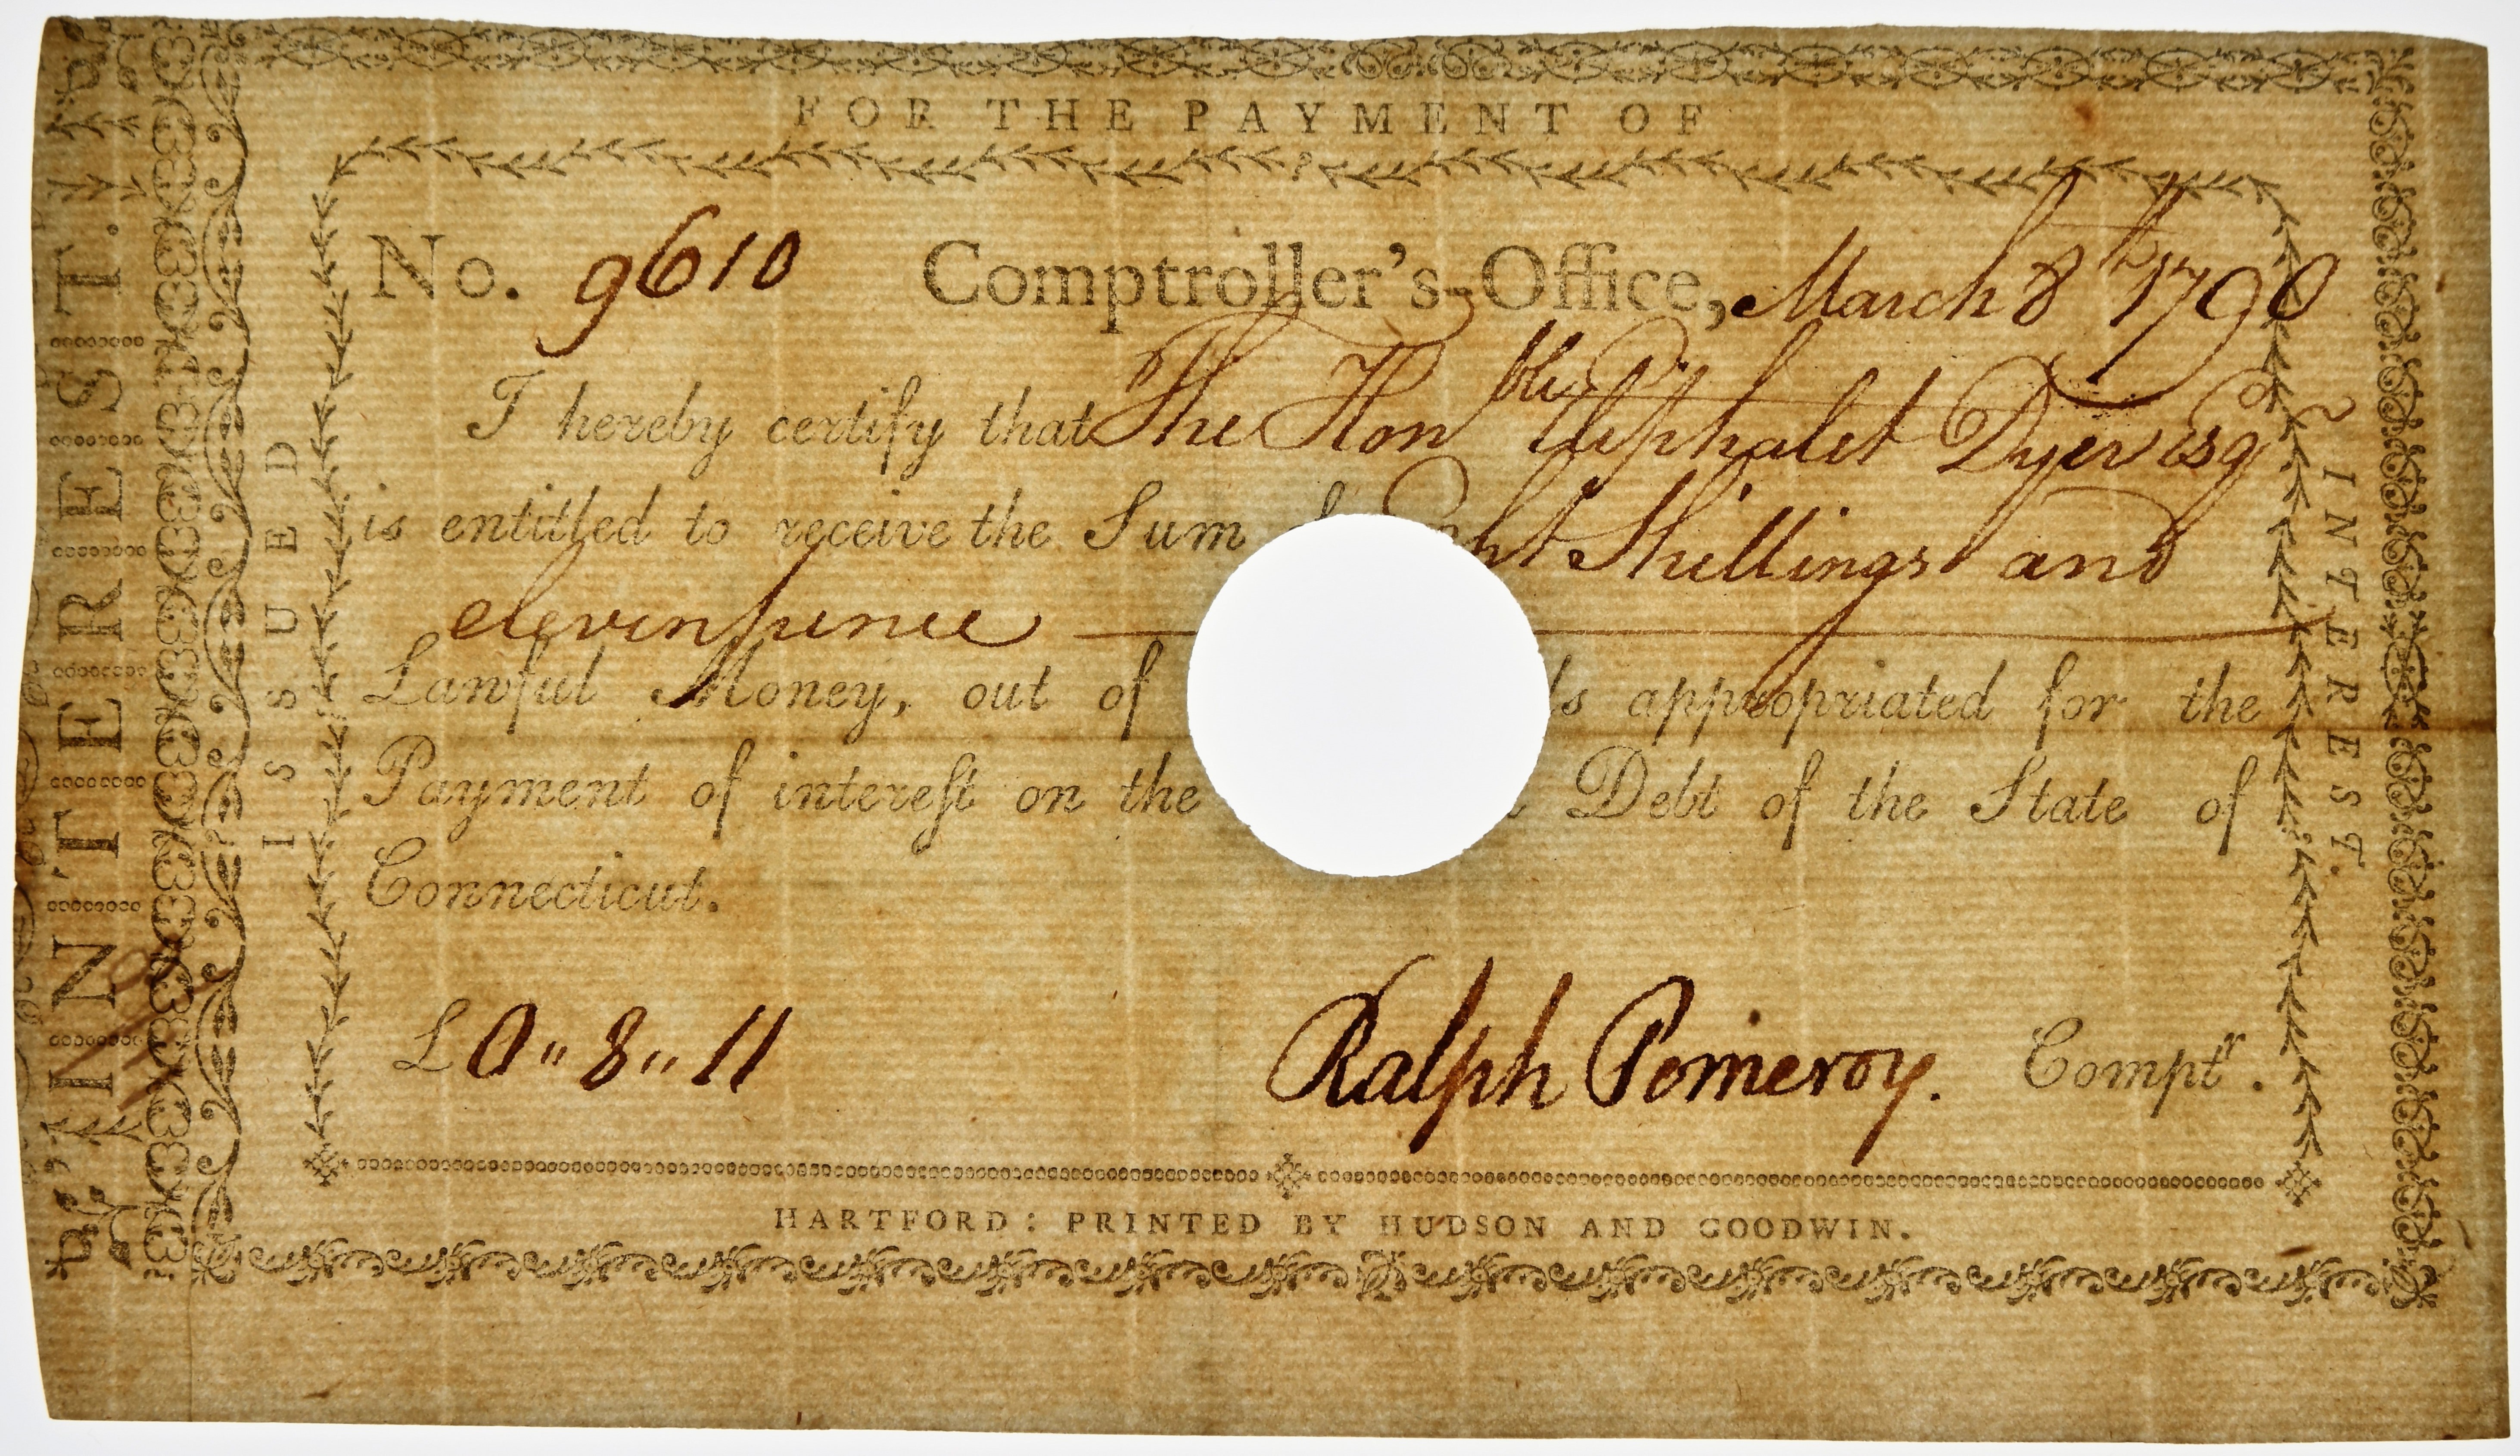 FOR THE PAYMENT OF
INTEREST.
ISSUED
INTEREST.
No. 9610 Comptroller's-Office, March 8th 1790
I hereby certify that The Honble Eliphalet Dyer Esq
is entitled to receive the Sum Shillings and
eleven pence
Lawful Money, out of appropriated for the
Payment of intereſt on the Debt of the State of
Connecticut.
£ 0 " 8 " 11 Ralph Pomeroy. Comptr.
HARTFORD: PRINTED BY HUDSON AND GOODWIN.